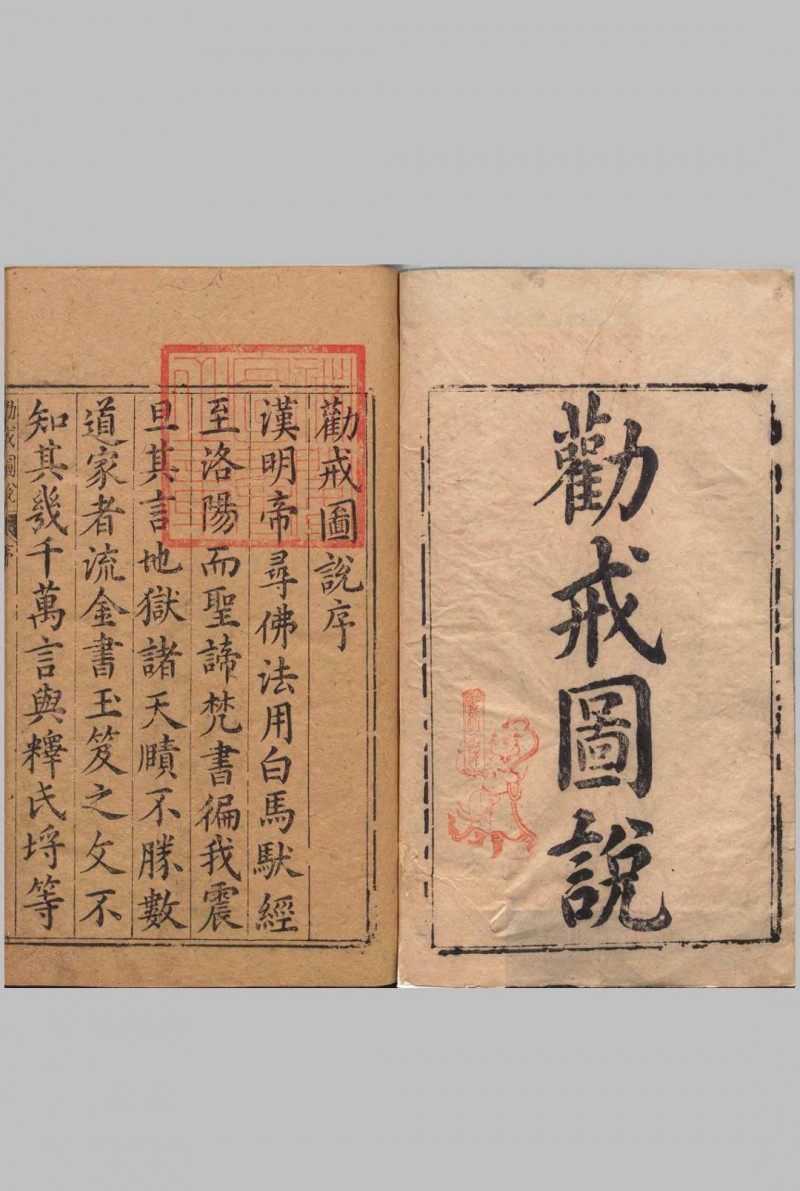 勸戒圖說
勸戒圖說序
漢明帝尋佛法用白馬馱經
至洛陽而聖諦梵書徧我震
旦其言地獄諸天賾不勝數
道家者流金書玉笈之文不
知其幾千萬言與釋氏埒等
勸戒圖說 序